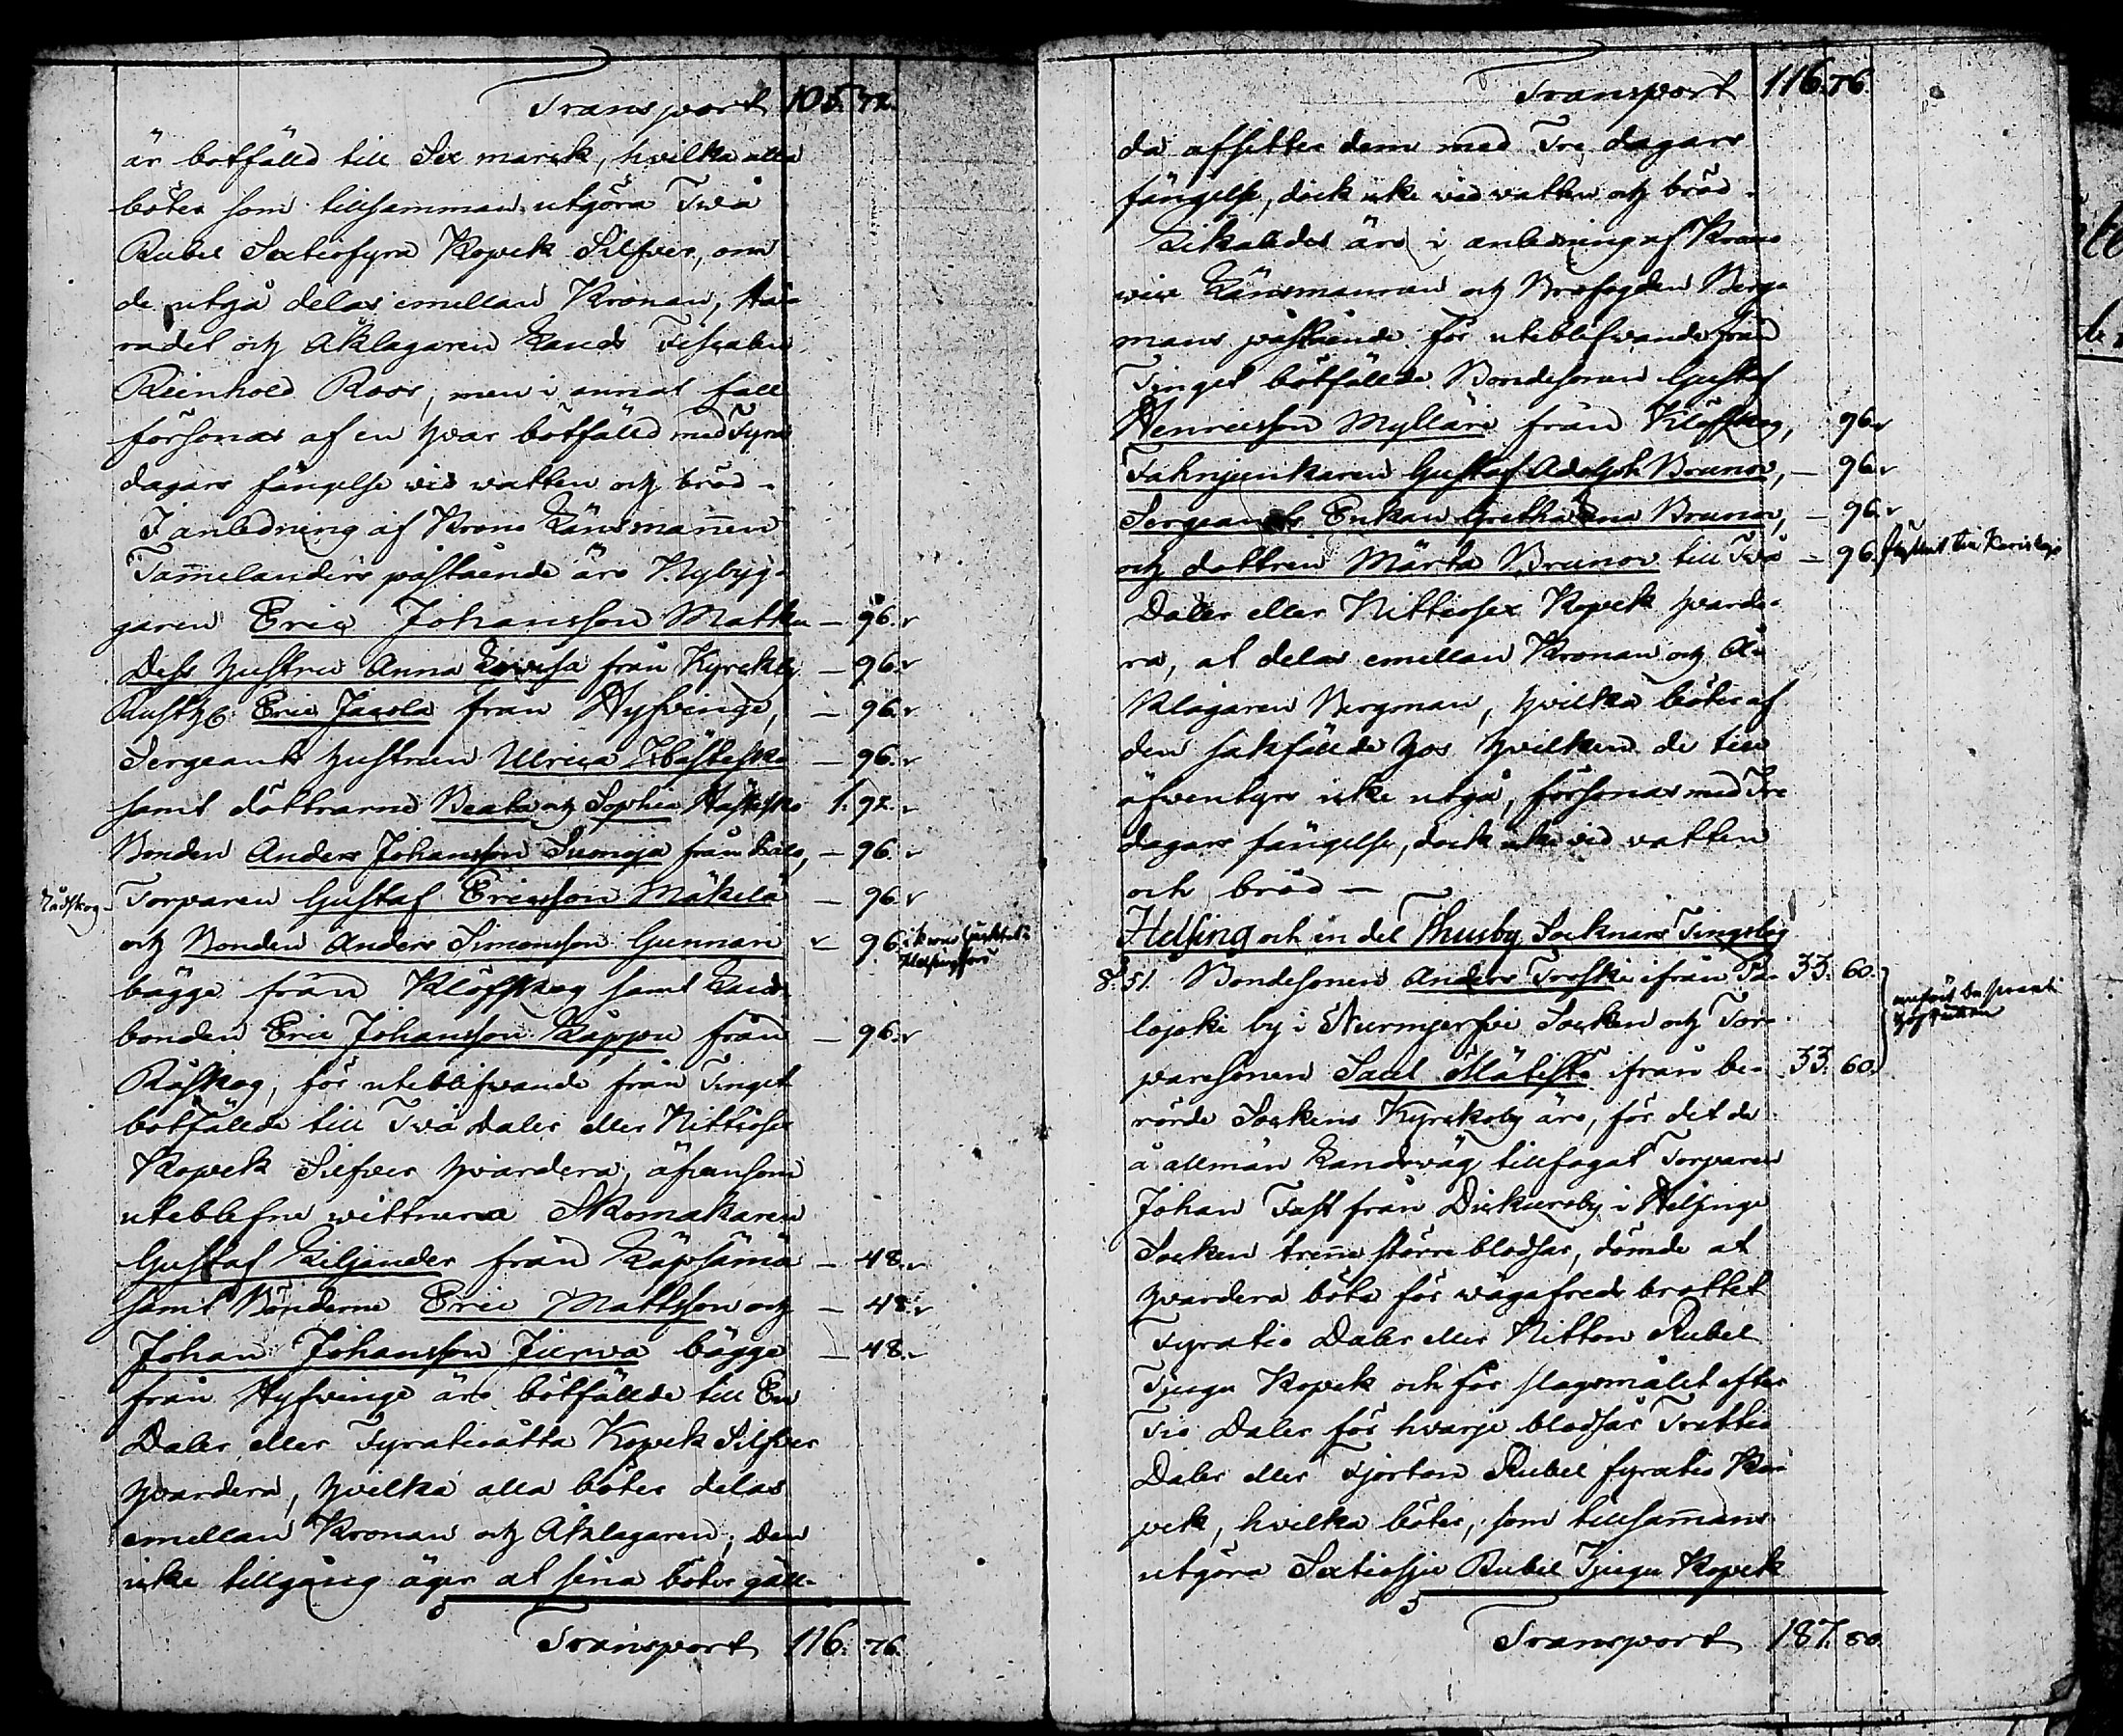 Transport 105. 72.
är botfälld till Sex marck, hvilka alla
böter som tillsamman utgöra Twå
Rubel Sextiofyra Kopek Silfver, om
de utgå delas emellan Kronan, Hä-
radet och Åklagaren Lands Fiscalen
Reinhold Roos, men i annat fall
försonas af en hvar botfälld med Fyra
dagars fängelse vid watten och bröd.
I anledning af Krono Länsmannen
Tamelanders påstående äro Nybyg-
garen Eric Johansson Matku — 96. v
Dess hustru Anna Lovisa från Kyrckby — 96. v
Rusth. Eric Jacola från Hyfvinge, — 96. v
Sergeants hustrun Ulrica Hästesko — 96. v
samt döttrarne Beata och Sophia Hästesko 1. 92. v
Bonden Anders Johansson Suonoja från Kalo, — 96. v
Torparen Gustaf Ericsson Mäkelä — 96. v
och Bonden Anders Simonsson Gunnari — 96.
bägge från Klöfskog samt Lands
bonden Eric Johansson Kappu från — 96. v
Råskog, för uteblifwande från Tinget
botfällde till Två daler eller Nittiosex
Kopek Silfver hvardera, äfvensom
uteblefne wittnena Skomakaren
Gustaf Kiljander från Käpsämä — 48. v
samt Bönderne Eric Mattsson och — 48. v
Johan Johansson Jierwa bägge — 48. v
från Hyfvinge äro botfällde till En
Daler eller Fyratioåtta Kopek Silfver
hvardera, hvilka alla böter delas
emellan Kronan och Åklagaren; den
icke tillgång äger at sina böter gäll-
Transport 116. 76.
Transport 116. 76.
da afsitter dem med Tre dagars
fängelse, dock icke vid watten och bröd.
Likaledes äro i anledning af Krono
vice Länsmannen och Brofogden Berg-
mans påstående för uteblifwande från
Tinget botfällde Bondesonen Gustaf
Henricsson Mylläri från Klöfskog, 96. v
Fahnjunkaren Gustaf Adolph Brunov, — 96. v
Sergeants Enkan Gretha Lena Brunov, — 96. v
och dottren Märta Brunov till Två — 96.
Daler eller Nittiosex Kopek hvarde-
ra, at delas emellan Kronan och Å-
klagaren Bergman, hvilka böter af
den sakfällde hos hvilken de till
äfventyrs icke utgå, försonas med Tre
dagars fängelse, dock icke vid watten
och bröd —
Helsing och en del Thusby Socknars Tingslag
§. 51. Bondesonen Anders Troski ifrån Pa- 33. 60.
lojoki by i Nurmijervi Socken och Tor-
paresonen Saul Mätistö ifrån be- 33. 60.
rörde Sockens Kyrckoby äro, för det de
å allmän Landsväg tillfogat Torparen
Johan Fast från Dickursby i Helsinge
Socken trenne större blodsår, dömde at
hvardera böta för wägafreds brottet
Fyratio Daler eller Nitton Rubel
Tjugu Kopek och för slagsmålet efter
Tio Daler för hvarje blodsår Trettio
Daler eller Fjorton Rubel fyratio Ko-
pek, hvilka böter, som tillsammans
utgöra Sextiosju Rubel Tjugu Kopek
Transport 187.